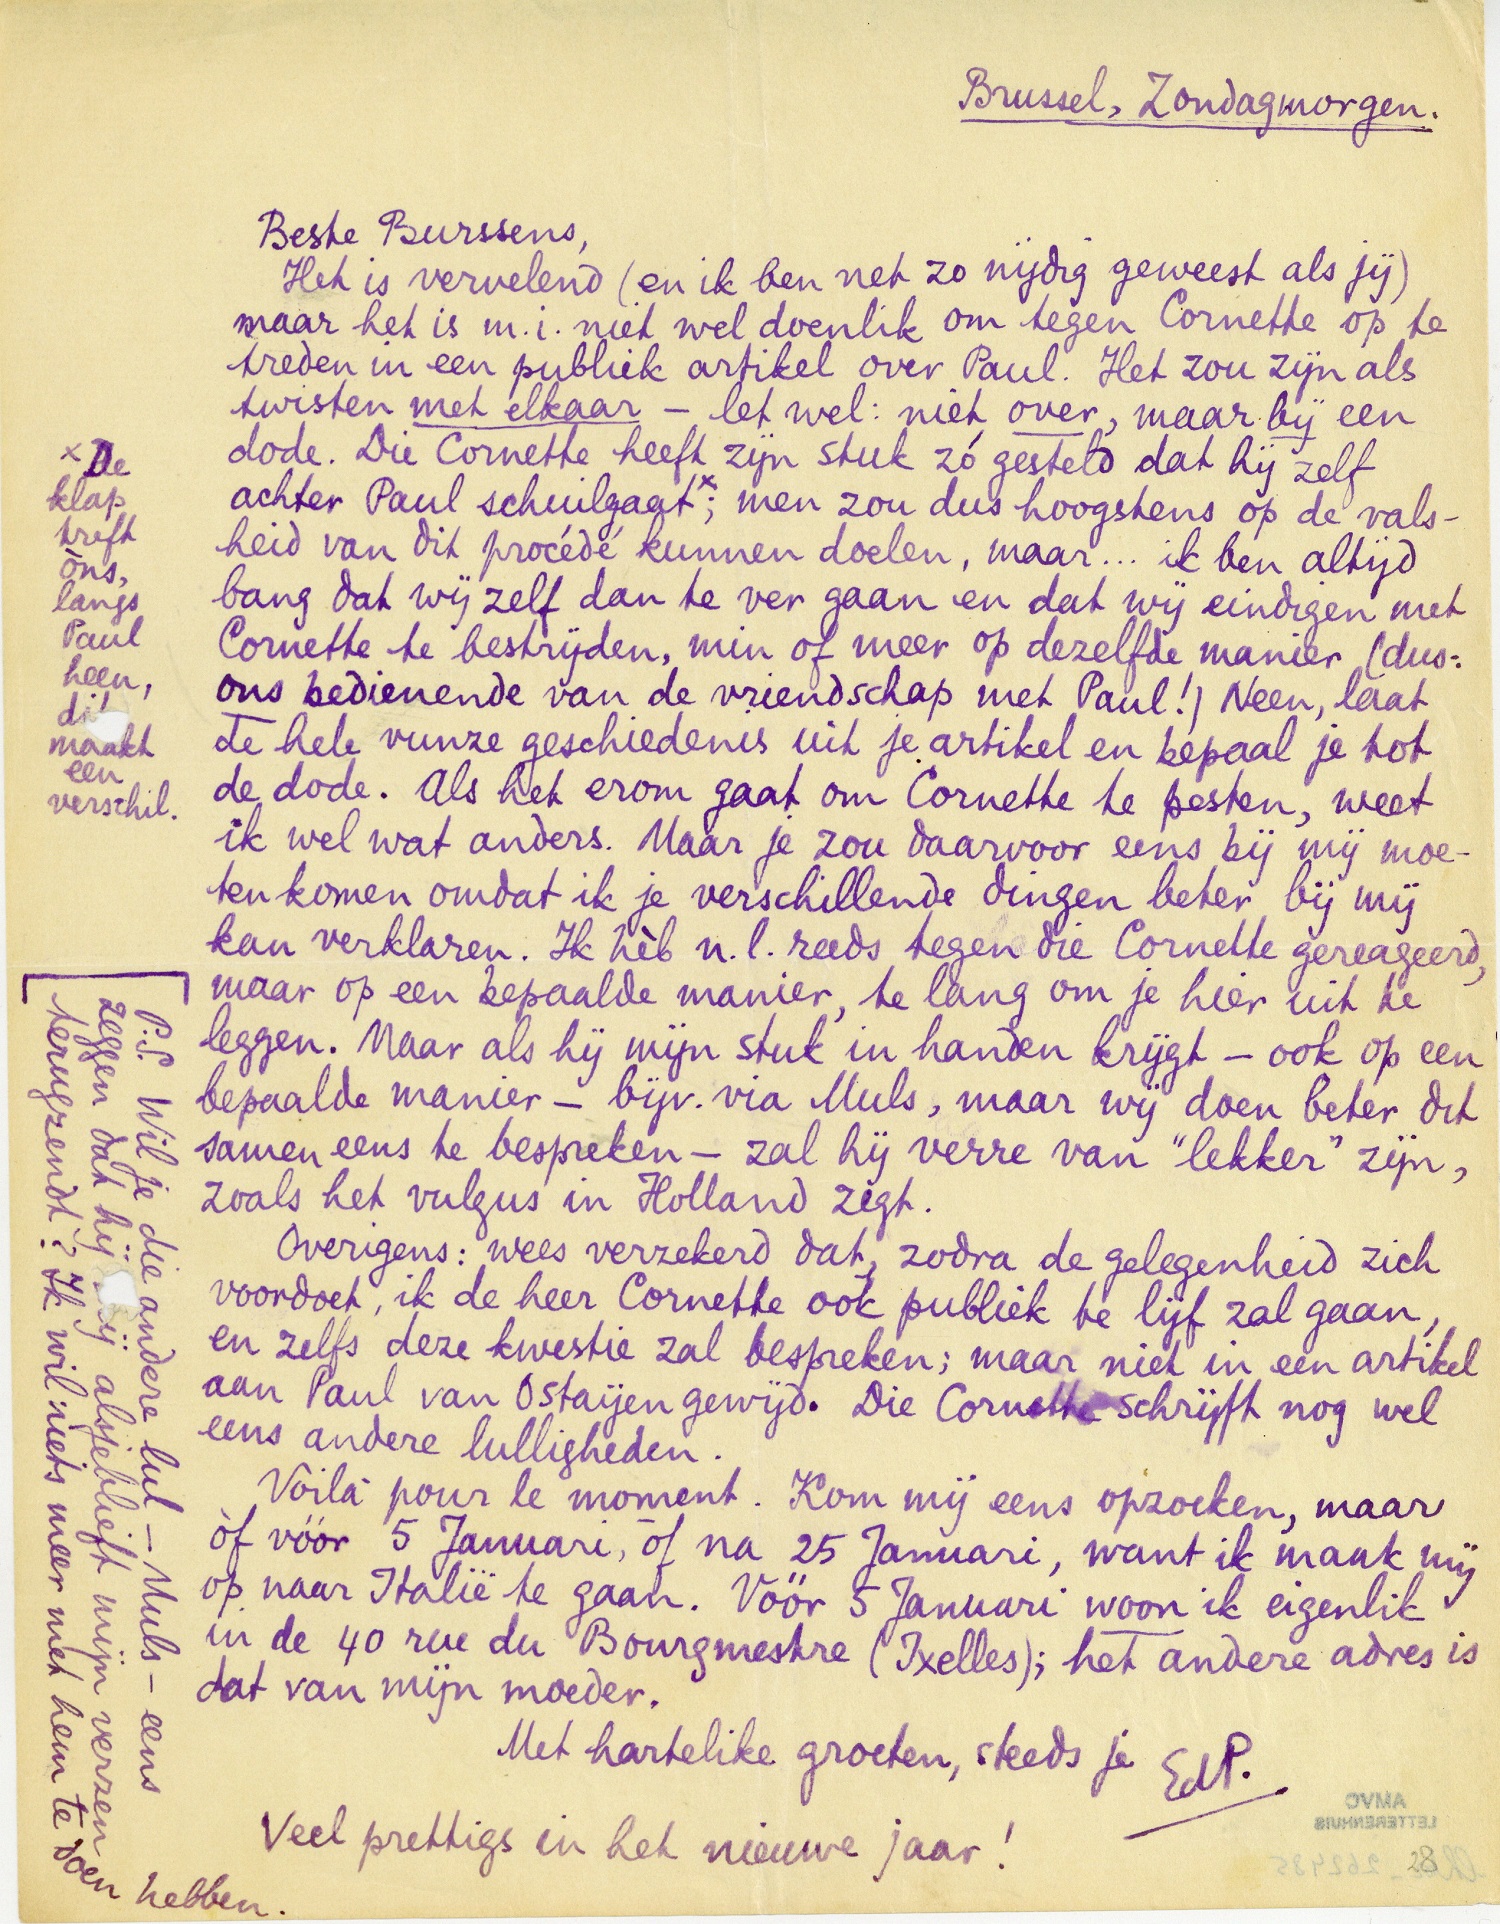 Brussel, Zondagmorgen.
Beste Burssens,
Het is vervelend (en ik ben net zo nijdig geweest als jij)
maar het is m.i. niet wel doenlik om tegen Cornette op te
treden in een publiek artikel over Paul. Het zou zijn als
twisten met elkaar – let wel: niet over, maar bij een
dode. Die Cornette heeft zijn stuk zó gesteld dat hij zelf
achter Paul schuilgaat×; men zou dus hoogstens op de vals-
heid van dit procédé kunnen doelen, maar... ik ben altijd
bang dat wij zelf dan te ver gaan en dat wij eindigen met
Cornette te bestrijden, min of meer op dezelfde manier (dus:
ons bedienende van de vriendschap met Paul!) Neen, laat
de hele vunze geschiedenis uit je artikel en bepaal je tot
de dode. Als het erom gaat om Cornette te pesten, weet
ik wel wat anders. Maar je zou daarvoor eens bij mij moe-
ten komen omdat ik je verschillende dingen beter bij mij
kan verklaren. Ik hèb n.l. reeds tegen die Cornette gereageerd,
maar op een bepaalde manier, te lang om je hier uit te
leggen. Maar als hij mijn stuk in handen krijgt – ook op een
bepaalde manier – bijv. via Muls, maar wij doen beter dit
samen eens te bespreken – zal hij verre van "lekker" zijn,
zoals het vulgus in Holland zegt.
Overigens: wees verzekerd dat, zodra de gelegenheid zich
voordoet, ik de heer Cornette ook publiek te lijf zal gaan,
en zelfs deze kwestie zal bespreken; maar niet in een artikel
aan Paul van Ostaijen gewijd. Die Cornette schrijft nog wel
eens andere lulligheden.
Voilà pour le moment. Kom mij eens opzoeken, maar
òf vóór 5 Januari, òf na 25 Januari, want ik maak mij
op naar Italië te gaan. Vóór 5 Januari woon ik eigenlik
in de 40 rue du Bourgmestre (Ixelles); het andere adres is
dat van mijn moeder.
Met hartelike groeten, steeds je
EdP.
Veel prettigs in het nieuwe jaar!
× De
klap
treft
óns,
langs
Paul
heen,
dit
maakt
een
verschil.
P.S. Wil je die andere lul – Muls – eens
zeggen dat hij mij alsjeblieft mijn verzen
terugzendt? Ik wil niets meer met hem te doen
hebben.
AMVC
LETTERENHUIS
262435
28